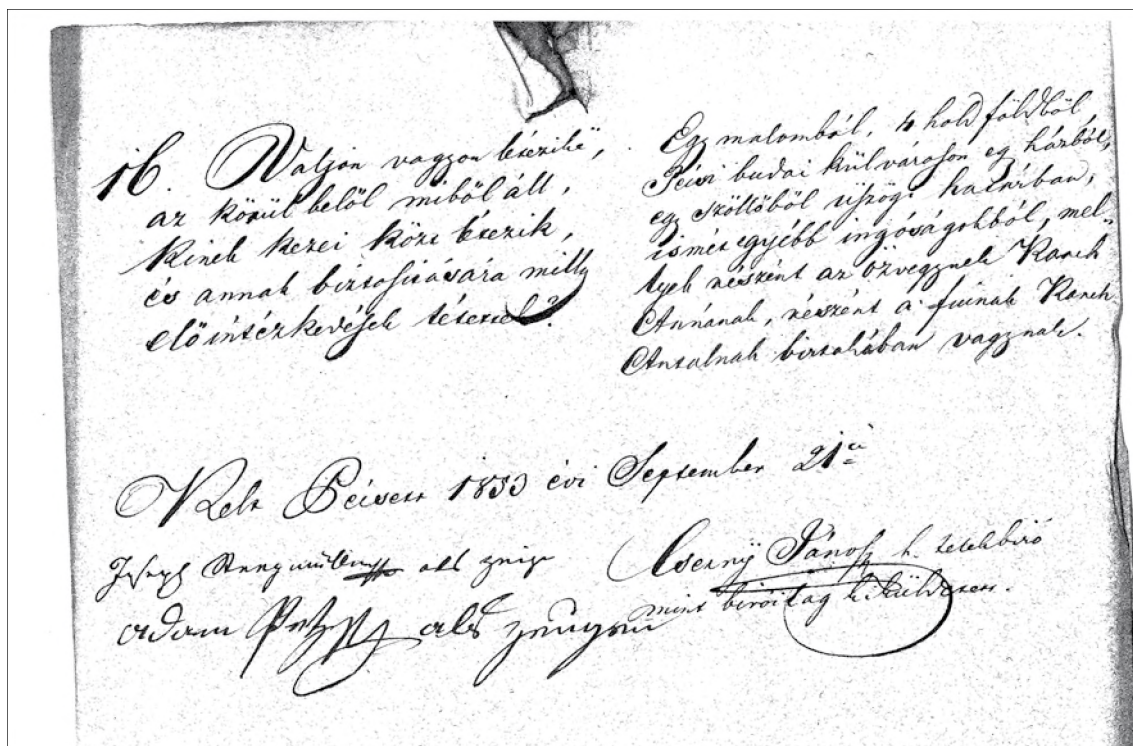 16. Valjon vagyon létezik é,
az körül belöl miböl áll,
kinek kezei közt létezik,
és annak biztosítására milly
előintézkedések tétettek?
Egy malomból, 4 hold földböl
Pécsi budai külvároson egy házból,
egy szöllőből üszögi határban,
ismét egyébb ingóságokból, mel-
lyek részént az özvegynek Kanch
Annának, részént a' fiúnak Kanch
Antalnak birtokában vagynak.
Kelt Pécsett 1853 évi September 21én
Joseph als zeuge
Adam als zeugen
Cserny János h. telekbíró
mint bírói tag kiküldetett.